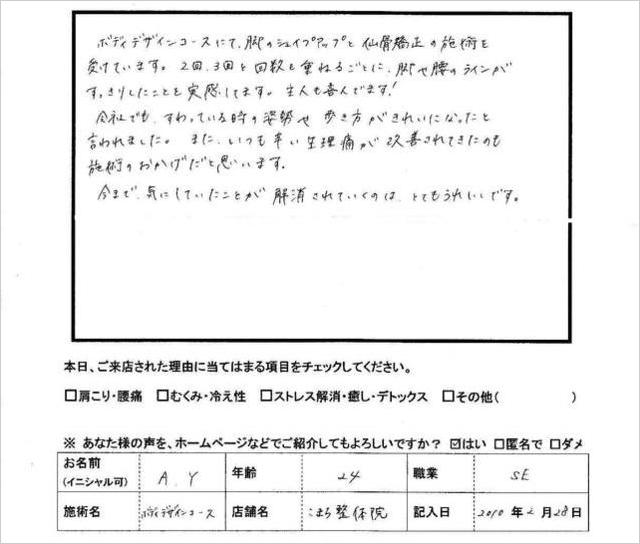 ボディデザインコースにて、脚のシェイプアップと仙骨矯正の施術を
受けています。2回、3回と回数を重ねるごとに、脚や腰のラインが
すっきりしたことを実感してます。主人も喜んでます!
会社でも、すわっている時の姿勢や歩き方がきれいになったと
言われました。また、いつも辛い生理痛が改善されてきたのも
施術のおかげだと思います。
今まで、気にしていたことが解消されていくのは、とてもうれしいです。
本日、ご来店された理由に当てはまる項目をチェックしてください。
□肩こり・腰痛 □むくみ・冷え性 □ストレス解消・癒し・デトックス □その他( )
※ あなた様の声を、ホームページなどでご紹介してもよろしいですか? ☑はい □匿名で □ダメ
お名前(イニシャル可) A.Y 年齢 24 職業 SE
施術名 ボディデザインコース 店舗名 整体院 記入日 2010年2月28日